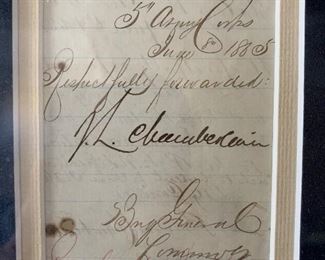 5th Army Corps
June 8th 1865
Respectfully forwarded:
J. L. Chamberlain
Brig General